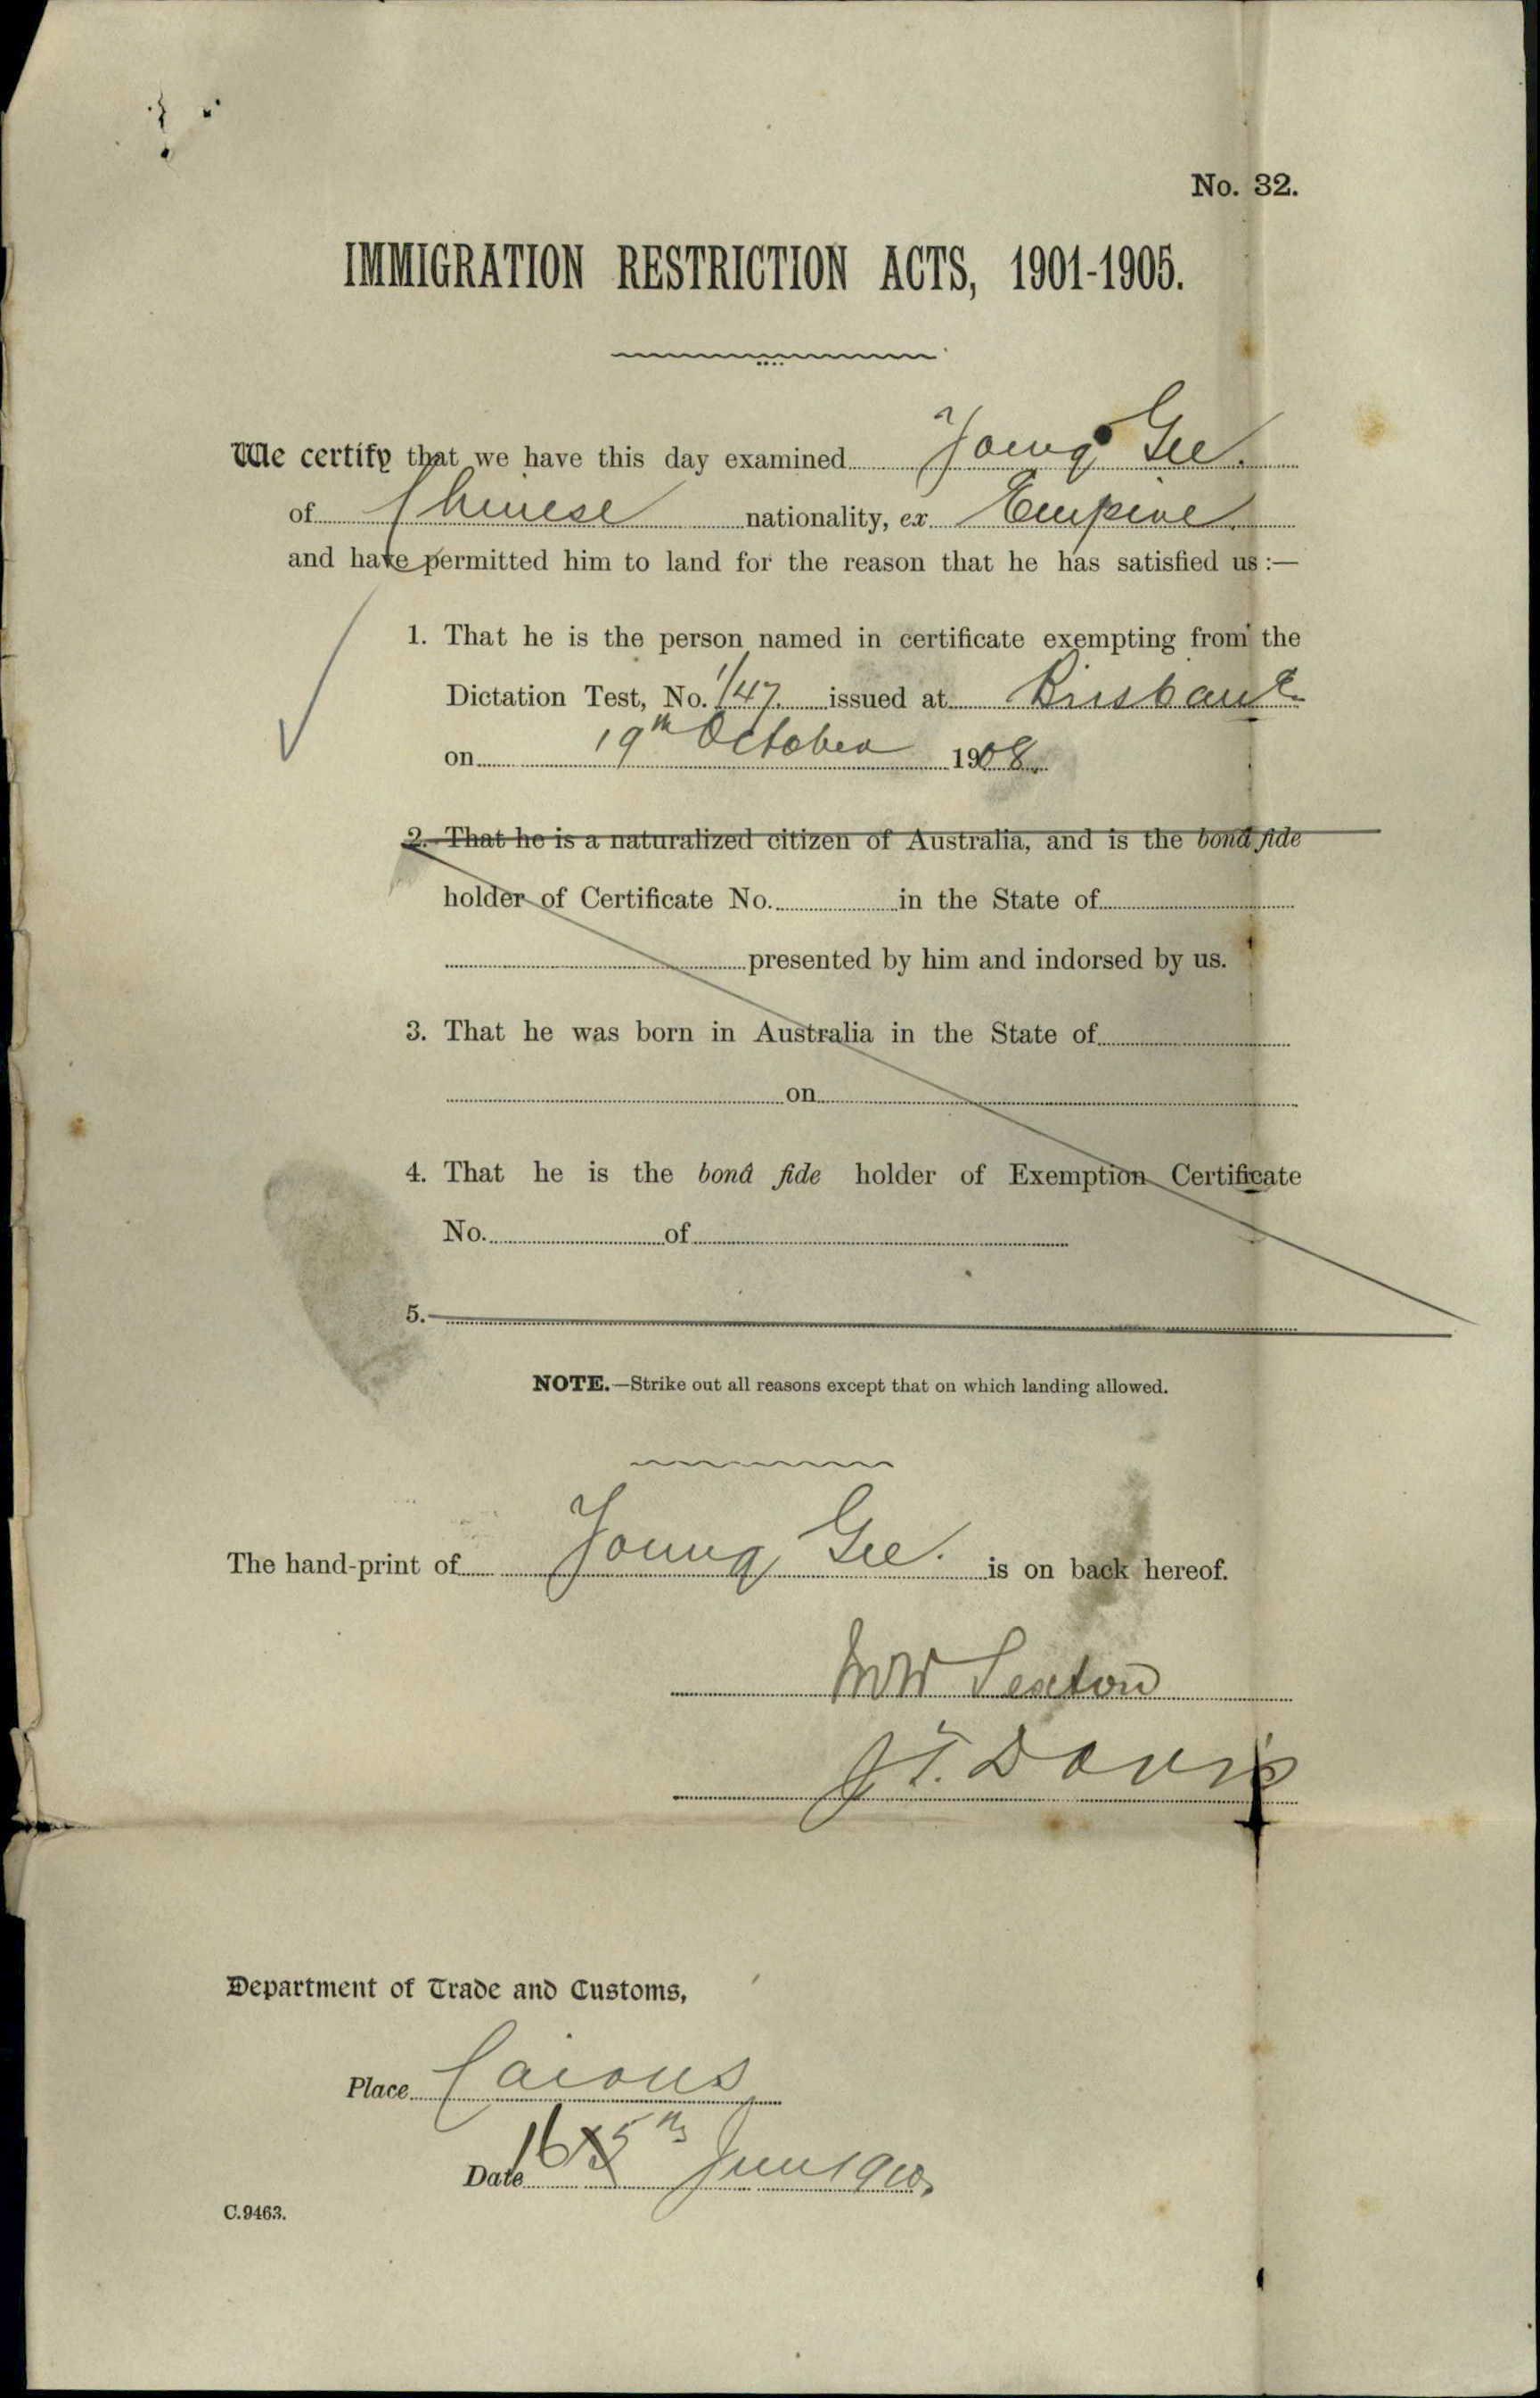 No. 32.
IMMIGRATION RESTRICTION ACTS, 1901-1905.
We certify that we have this day examined Young Gee.
of Chinese nationality, ex Empire
and have permitted him to land for the reason that he has satisfied us :—
1. That he is the person named in certificate exempting from the
Dictation Test, No. 1/47 issued at Brisbane
on 19th October 1908.
2. That he is a naturalized citizen of Australia, and is the bonâ fide
holder of Certificate No. in the State of
presented by him and indorsed by us.
3. That he was born in Australia in the State of
on
4. That he is the bonâ fide holder of Exemption Certificate
No. of
5.
NOTE.—Strike out all reasons except that on which landing allowed.
The hand-print of Young Gee. is on back hereof.
Sexton
J T. Davis
Department of Trade and Customs,
Place Cairns
Date 16 th June 1910.
C.9463.